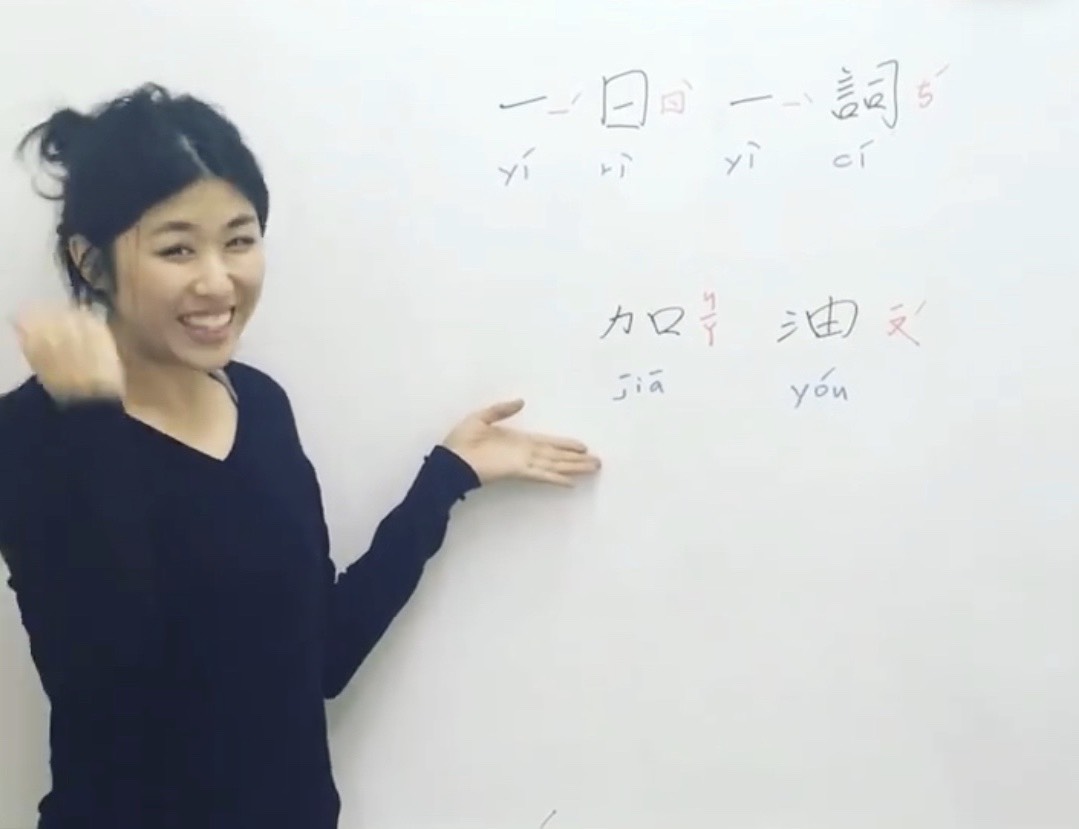 一 ㄧˊ 日 ㄖˋ 一 ㄧˋ 詞 ㄘˊ
yí rì yì cí
加 ㄐㄧㄚ 油 ㄧㄡˊ
jiā yóu